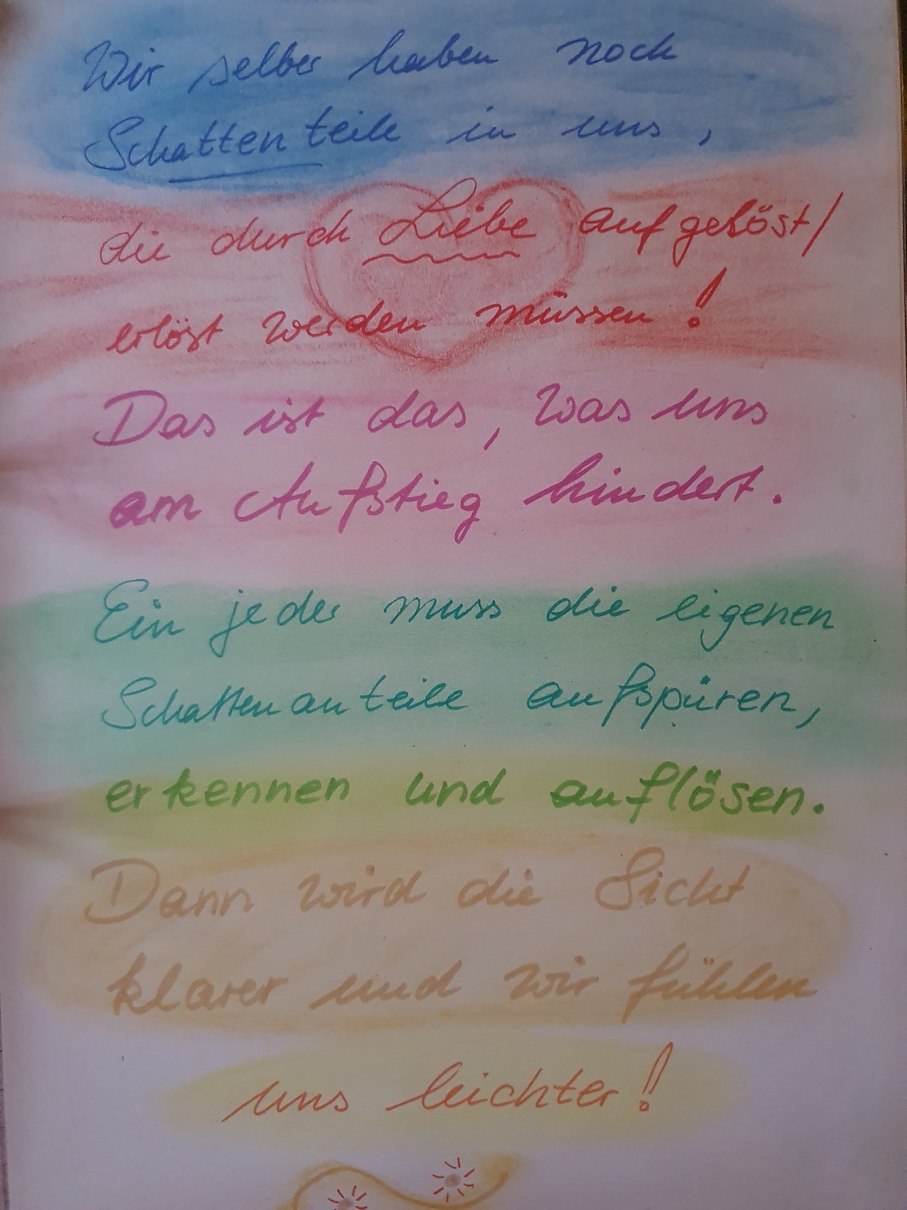 Wir selber haben noch
Schattenteile in uns,
die durch Liebe aufgelöst/
erlöst werden müssen!
Das ist das, was uns
am Aufstieg hindert.
Ein jeder muss die eigenen
Schattenanteile aufspüren,
erkennen und auflösen.
Dann wird die Sicht
klarer und wir fühlen
uns leichter!